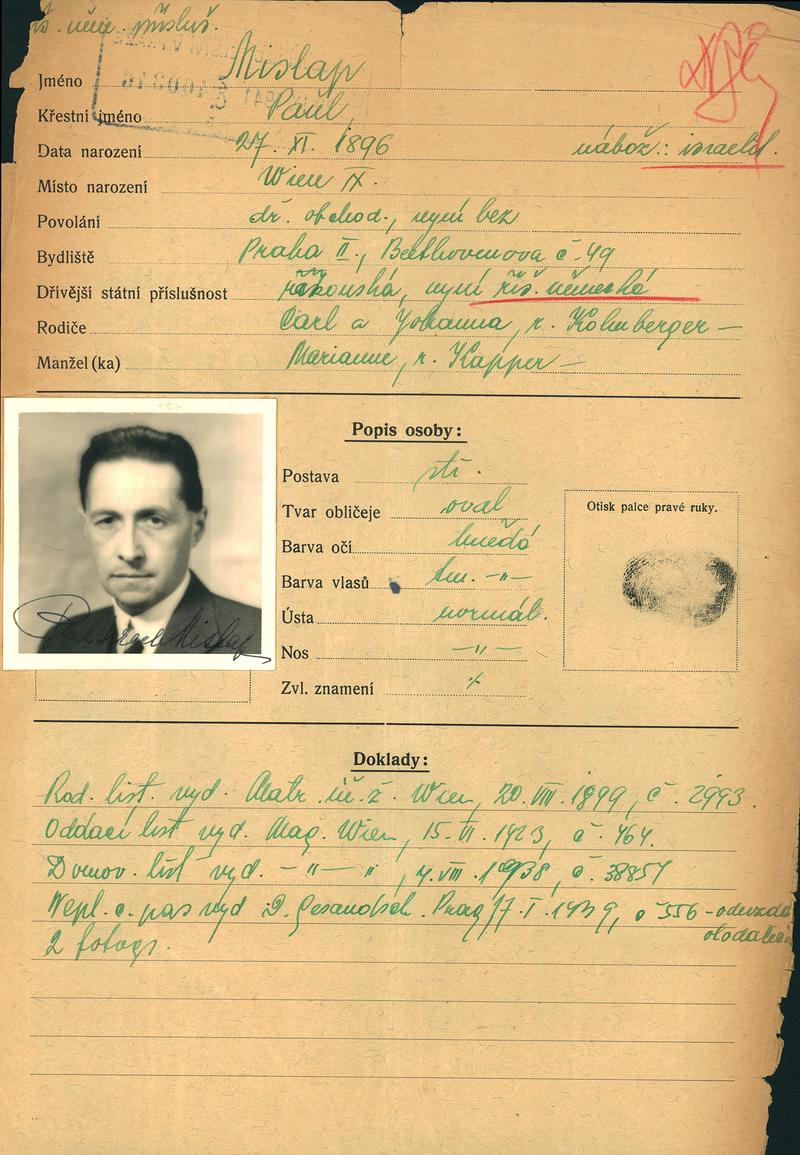 něm. přísluš.
Jméno Mislap
Křestní jméno Paul
Data narození 27. XI. 1896 nábož.: israelit.
Místo narození Wien IX.
Povolání dř. obchod., nyní bez
Bydliště Praha II., Beethovenova č. 49
Dřívější státní příslušnost rakouská, nyní říš. německá
Rodiče Carl a Johanna, r. Kolmberger —
Manžel (ka) Marianne, r. Kapper —
Popis osoby:
Postava stř.
Tvar obličeje oval
Otisk palce pravé ruky.
Barva očí hnědá
Barva vlasů tm. -"-
Ústa normál.
Nos -"-
Zvl. znamení
Paul Israel Mislap
Doklady:
Rod. list. vyd. Matr. úř. ž. Wien, 20. VIII. 1899, č. 2993.
Oddací list vyd. Mag. Wien, 15. VI. 1923, č. 464.
Domov. list vyd. -"- -"-, 4. VIII. 1938, č. 38857
Nepl. c. pas vyd D. Gesandsch. Prag 17. I. 1939, č 556 - odevzdá
2 fotogr.